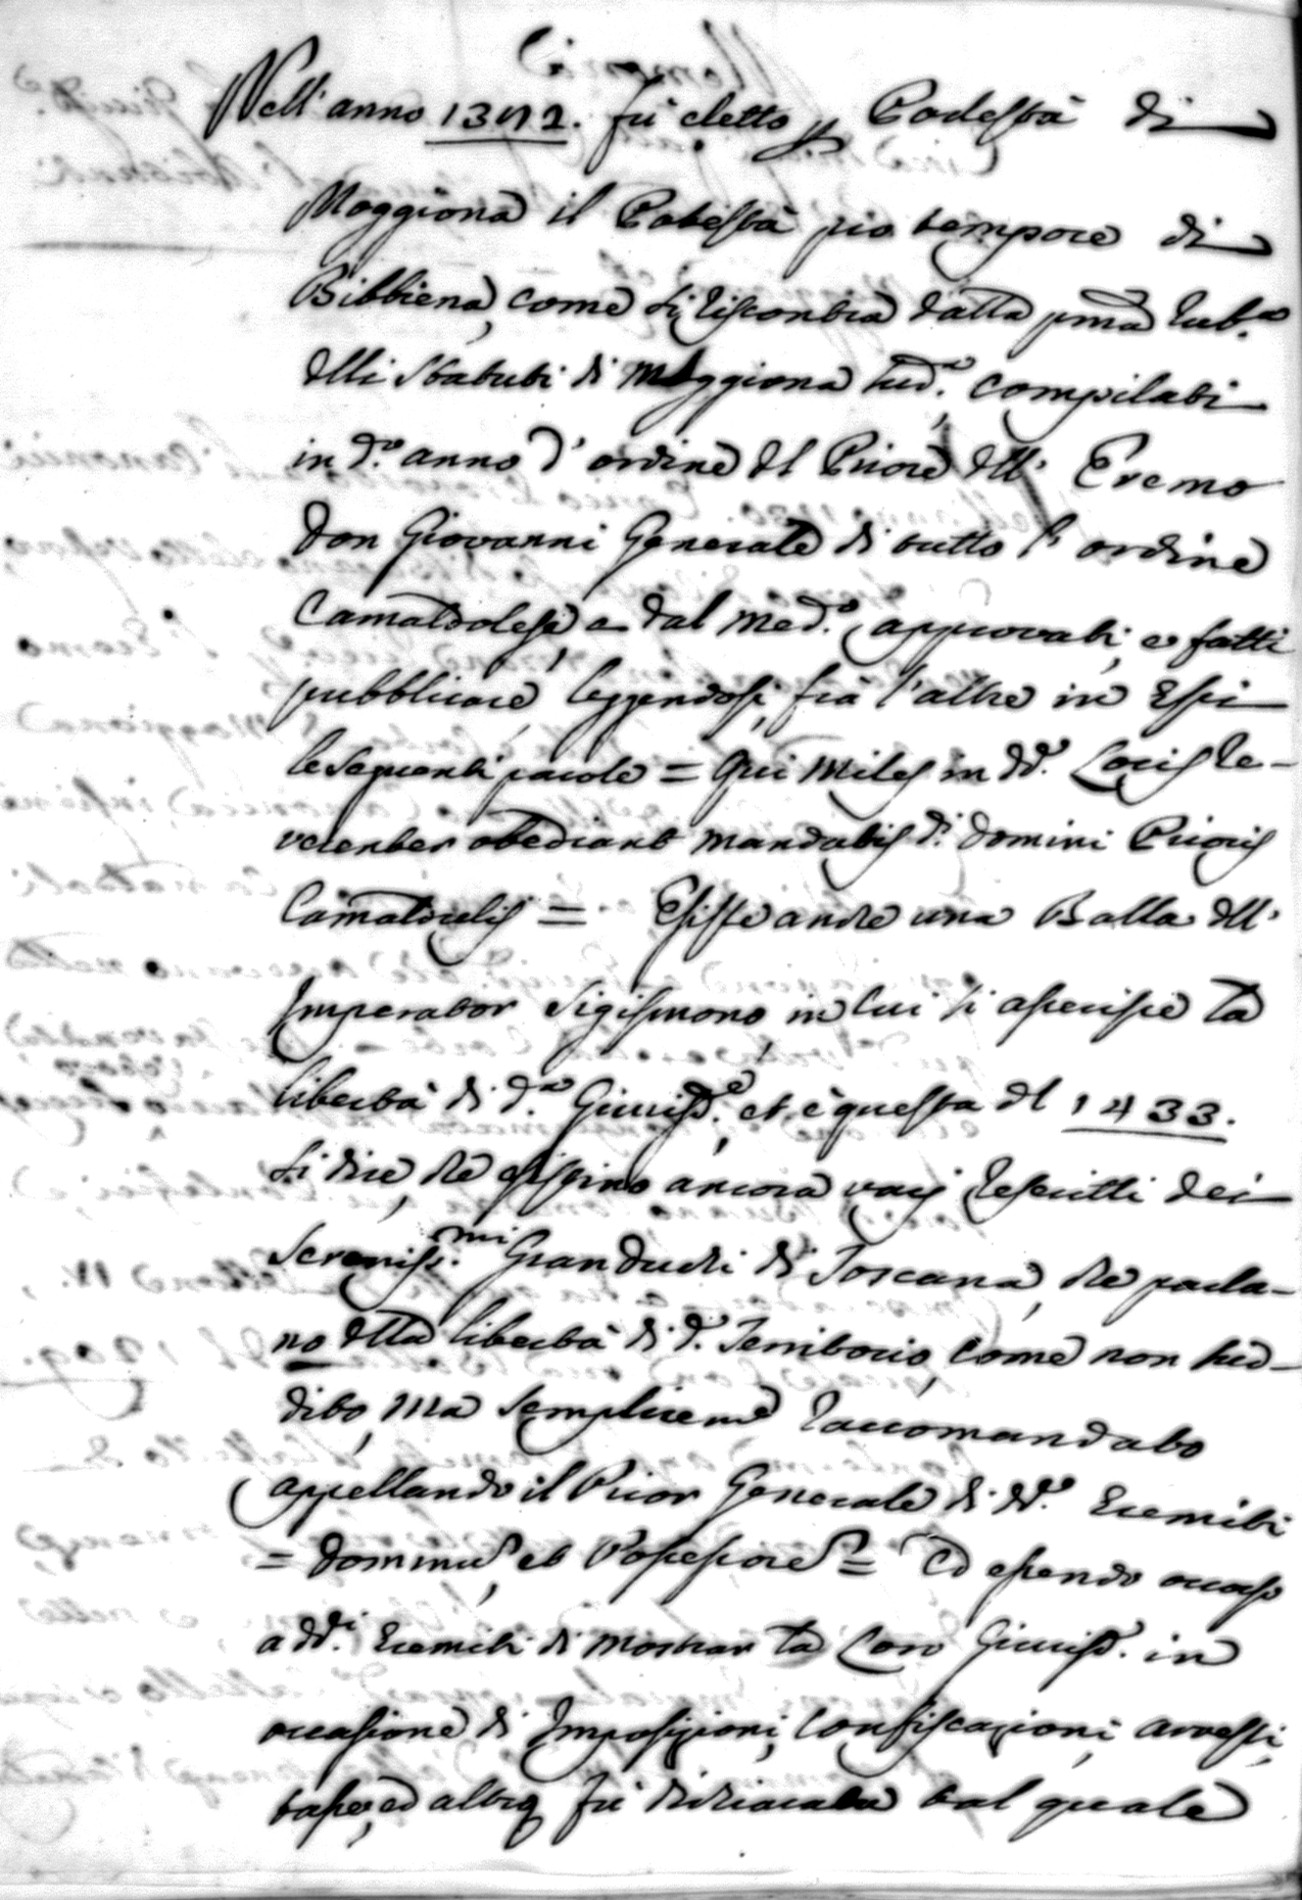 Nell'anno 1382. fù eletto p Podestà di
Moggiona il Potestà pro tempore di
Bibbiena, come si riscontra dalla pma Rub.a
dlli Statuti di Moggiona sud.a, compilati
in d.o anno d'ordine dl Priore dll' Eremo
Don Giovanni Generale di tutto l'ordine
Camaldolese, e dal med.o approvati, e fatti
pubblicare, leggendosi frà l'altre in Essi
le seguenti parole = Qui Miles in dd.s Locis re-
verenter obediant mandatis d.i Domini Prioris
Camaldulis = Esiste anche una Bolla dll'
Imperator Sigismono, in cui si asserisce la
libertà di d.a Giurisd.e, et è questa dl 1433.
Si dice, che esistino ancora varj Rescritti dei
Sereniss.mi Granduchi di Toscana, che parla-
no dlla libertà di d.o Territorio, come non sud-
dito, ma semplicem.e raccomandato
appellando il Prior Generale di dd.i Eremiti
= Dominus, et Possessores = Ed essendo occorso
a dd.i Eremiti di mostrar la loro Giurisd.e in
occasione di Imposizioni, Confiscazioni, arresti,
tasse, ed altro, fù dichiarata tal quale